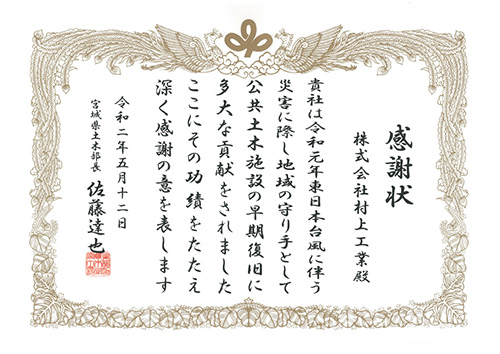 感謝状
株式会社村上工業殿
貴社は令和元年東日本台風に伴う
災害に際し地域の守り手として
公共土木施設の早期復旧に
多大な貢献をされました
ここにその功績をたたえ
深く感謝の意を表します
令和二年五月十二日
宮城県土木部長 佐藤達也